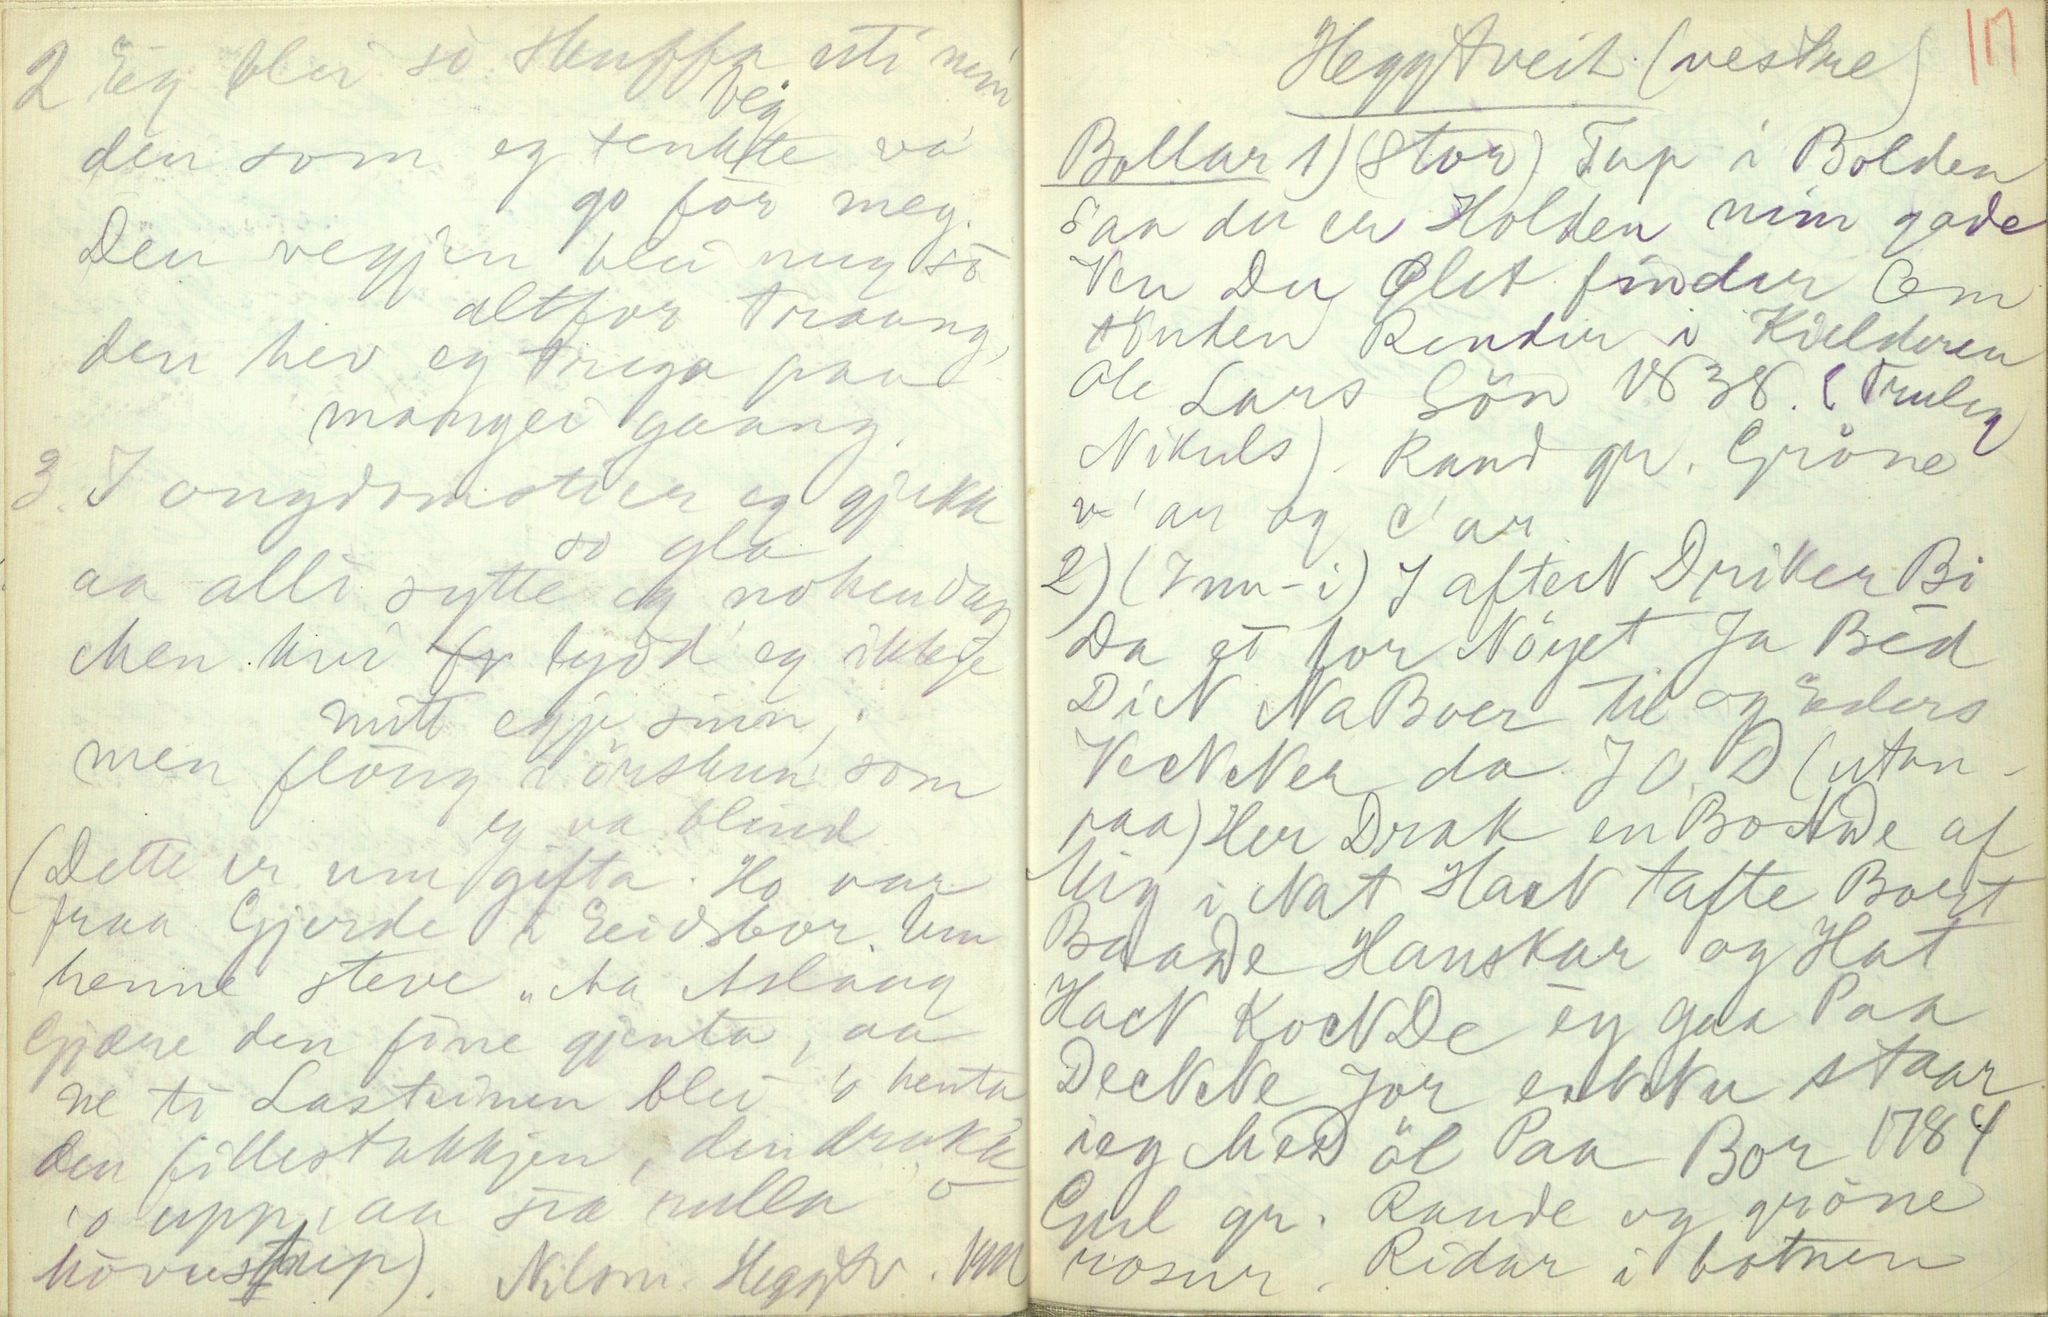 2 Eg blei so skuffa uti min
veg
den som eg tenkte va
go for meg.
Den vegjen blei meg så
altfor traang,
den hev eg trega paa
mangei gaang.
3. I ongdomstier eg gjekk
so gla
aa alli sytte eg nokendag
Men kvi lyd'd eg ikkje
mitt egje sinn,
men flaug i örskun som
eg va blind
(Dette er um gifta. Ho var
fraa Gjerde i Eidsbor. Um
henne steve "Aa Aslaug
Gjære den fine gjenta, aa
ne ti Lasteinen blei 'o henta
den fillestakkjen, den drakk
'o upp, aa sia rulla 'o
hovustup). N. Olsm. Heggtv.
17
Heggtveit (vestre)
Bollar 1) (Stor) Tap i Bolden
Saa du er Holden min gode
Ven Du Glet finder Om
tönden Render i Kielderen
Ole Lars Sön 1838. (Truleg
Nikuls). Raud gr. Gröne
v'ar og c'ar
2) (Inn-i) I afteN Driker Bi
Da et for Nöyet Ja Bed
DiN NaBoer til og Eders
VeNNer da I O. D (utan-
paa) Her Drak en BoNDe af
Mig i Nat HaN tafte Bort
BaaDe Hanskar og Hat
HaN KoNDe ey gaa Paa
DeNNe Jor enNNu staar
ieg MeD öl Paa Bor 1784
Gul gr. Raude og gröne
rosur. Ridar i botnen